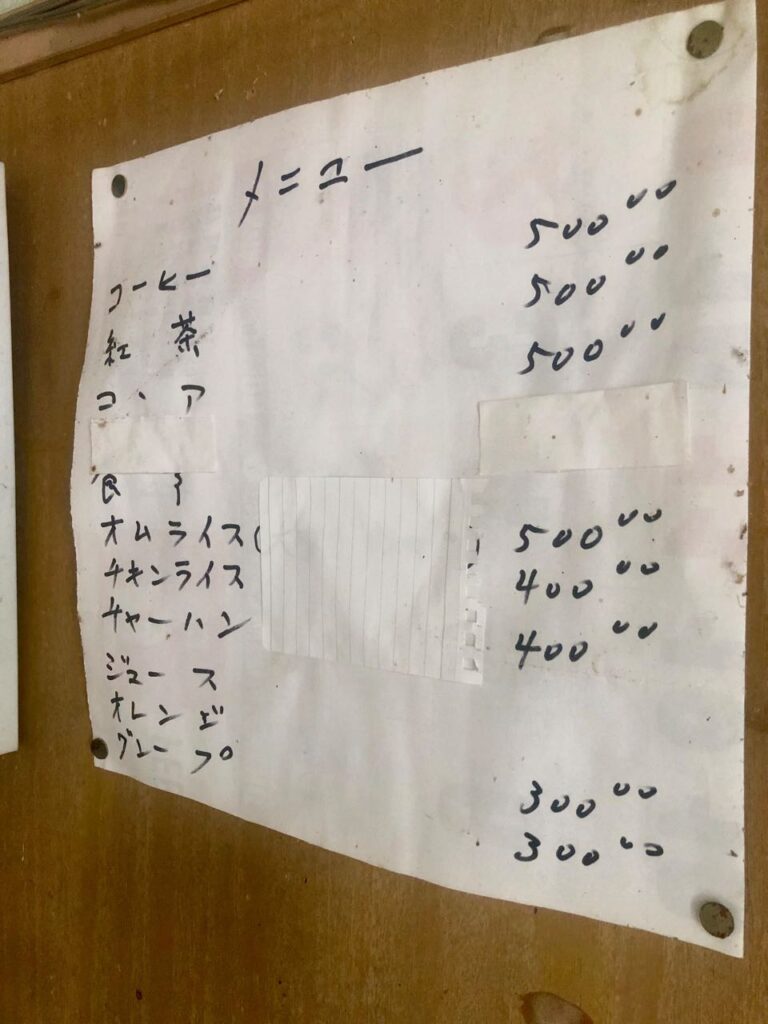 メニュー
コーヒー 500 00
紅茶 500 00
ココア 500 00
オムライス( 500 00
チキンライス 400 00
チャーハン 400 00
ジュース
オレンジ 300 00
グレープ 300 00